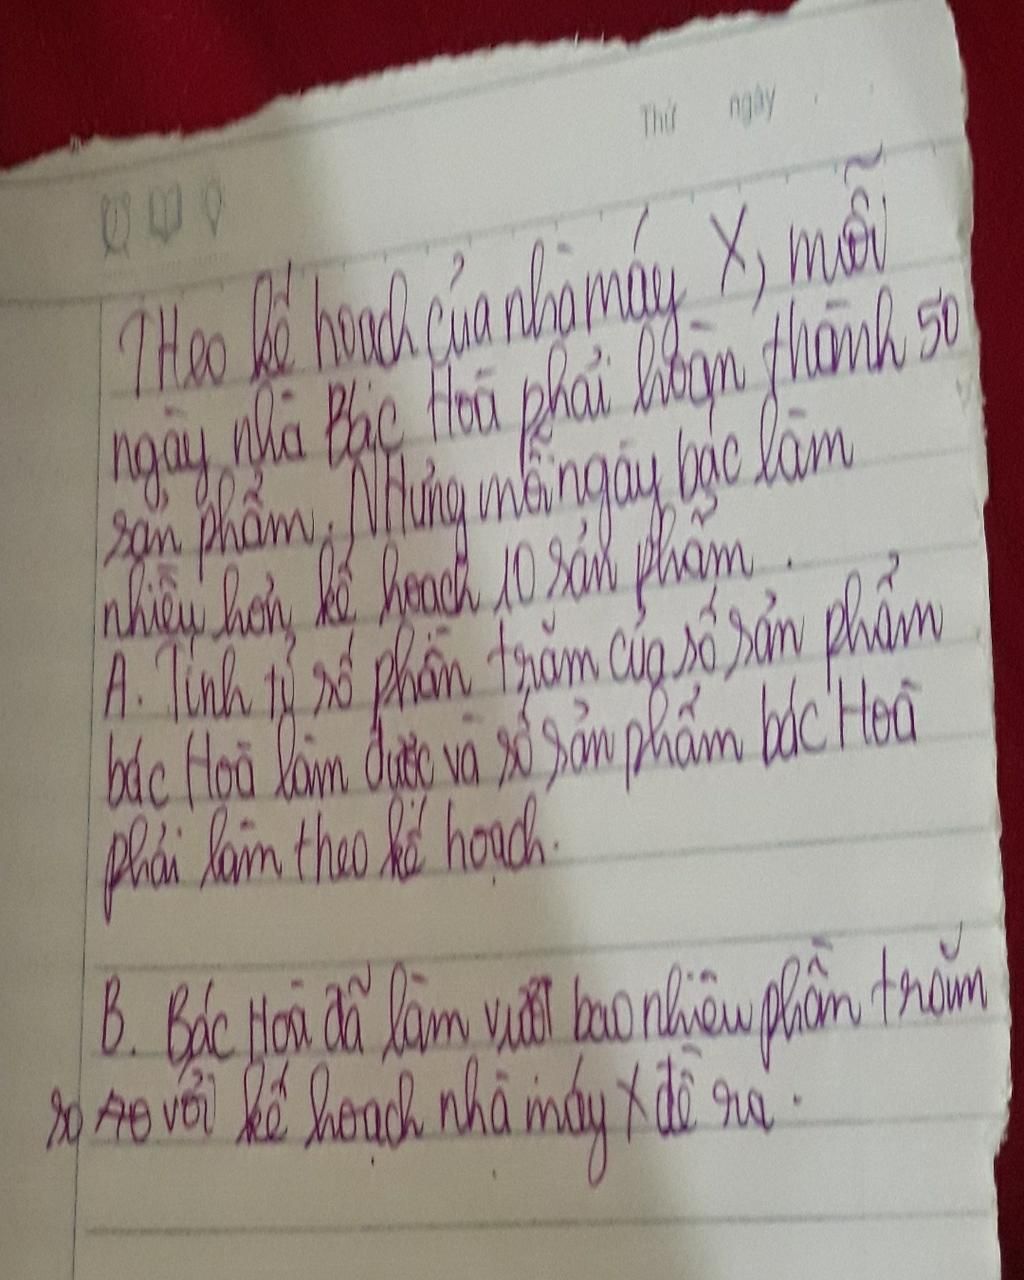 Thứ ngày
Theo kế hoạch của nhà máy X, mỗi
ngày nhà Bác Hoà phải hoàn thành 50
sản phẩm. Nhưng mỗi ngày bác làm
nhiều hơn kế hoạch 10 sản phẩm.
A. Tính tỷ số phần trăm của số sản phẩm
bác Hoà làm được và số sản phẩm bác Hoà
phải làm theo kế hoạch.
B. Bác Hoà đã làm vượt bao nhiêu phần trăm
so với kế hoạch nhà máy X đề ra.